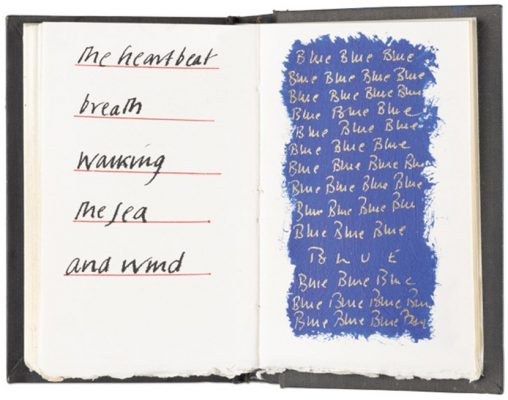 the heartbeat
breath
walking
the sea
and wind
Blue Blue Blue
Blue Blue Blue Blue
Blue Blue Blue Blue
Blue Blue Blue
Blue Blue Blue
Blue Blue Blue
Blue Blue Blue Blue
Blue Blue Blue Blue
Blue Blue Blue Blue
Blue Blue Blue
BLUE
Blue Blue Blue
Blue Blue Blue Blue
Blue Blue Blue Blue